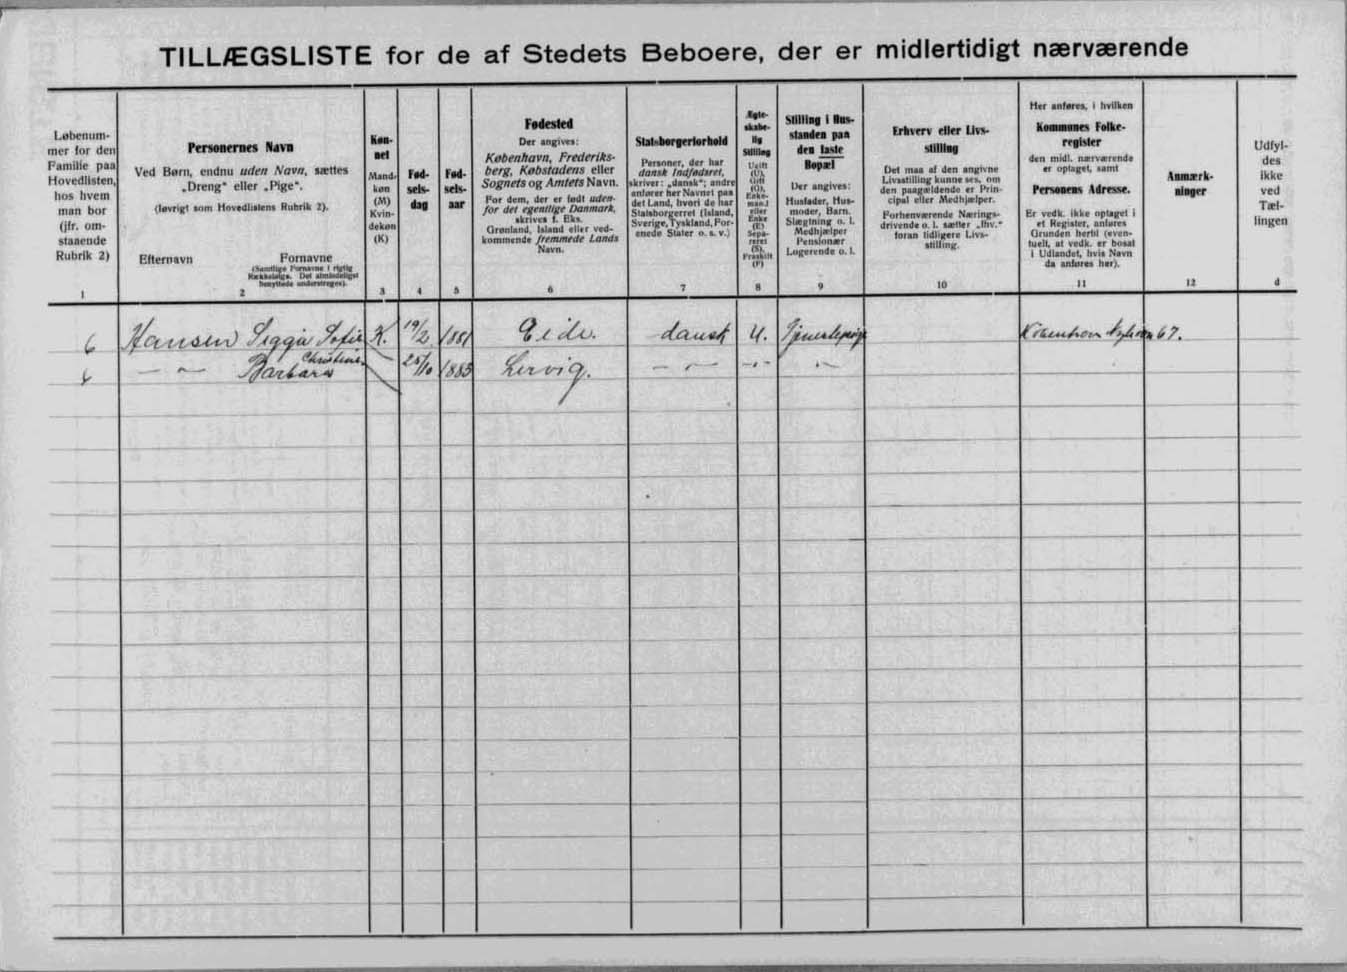 TILLÆGSLISTE for de af Stedets Beboere, der er midlertidigt nærværende
Løbenum-
mer for den
Familie paa
Hovedlisten,
hos hvem
man bor
(jfr. om-
staaende
Rubrik 2)
1
Personernes Navn
Ved Børn, endnu uden Navn, sættes
„Dreng“ eller „Pige“.
(Iøvrigt som Hovedlistens Rubrik 2).
Efternavn Fornavne
(Samtlige Fornavne i rigtig
Rækkefølge. Det almindeligst
benyttede understreges).
2
Køn-
net
Mand-
køn
(M)
Kvin-
dekøn
(K)
3
Fød-
sels-
dag
4
Fød-
sels-
aar
5
Fødested
Der angives:
København, Frederiks-
berg, Købstadens eller
Sognets og Amtets Navn.
For dem, der er født uden-
for det egentlige Danmark,
skrives f. Eks.
Grønland, Island eller ved-
kommende fremmede Lands
Navn.
6
Statsborgerforhold
Personer, der har
dansk Indfødsret,
skriver: „dansk“; andre
anfører her Navnet paa
det Land, hvori de har
Statsborgerret (Island,
Sverige, Tyskland, For-
enede Stater o. s. v.)
7
Ægte-
skabe-
lig
Stilling
Ugift
(U),
Gift
(G),
Enke-
mand
eller
Enke
(E)
Sepa-
reret
(S),
Fraskilt
(F)
8
Stilling i Hus-
standen paa
den faste
Bopæl
Der angives:
Husfader, Hus-
moder, Barn,
Slægtning o. l.
Medhjælper
Pensionær
Logerende o. l.
9
Erhverv eller Livs-
stilling
Det maa af den angivne
Livsstilling kunne ses, om
den paagældende er Prin-
cipal eller Medhjælper.
Forhenværende Nærings-
drivende o. l. sætter „fhv.“
foran tidligere Livs-
stilling.
10
Her anføres, i hvilken
Kommunes Folke-
register
den midl. nærværende
er optaget, samt
Personens Adresse.
Er vedk. ikke optaget i
et Register, anføres
Grunden hertil (even-
tuelt, at vedk. er bosat
i Udlandet, hvis Navn
da anføres her).
11
Anmærk-
ninger
12
Udfyl-
des
ikke
ved
Tæl-
lingen
d
6 Hansen Siggia Sofie K. 19/2 1881 Eide. dansk U. København 67.
6 — " — Barbara Christine 25/10 1883 Lervig. — " — — " — "